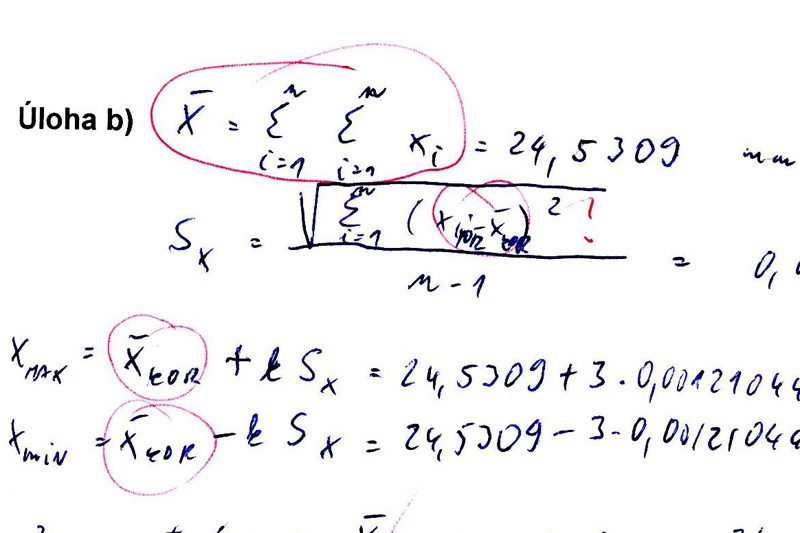 Úloha b) X̄ = Σ i=1 n Σ i=1 n xi = 24,5309 mm
Sx = √ Σ i=1 n (xi KOR - x̄KOR)² ! / n - 1 = 0,
XMAX = X̄KOR + k Sx = 24,5309 + 3 · 0,00121044
Xmin = X̄KOR - k Sx = 24,5309 - 3 · 0,00121044